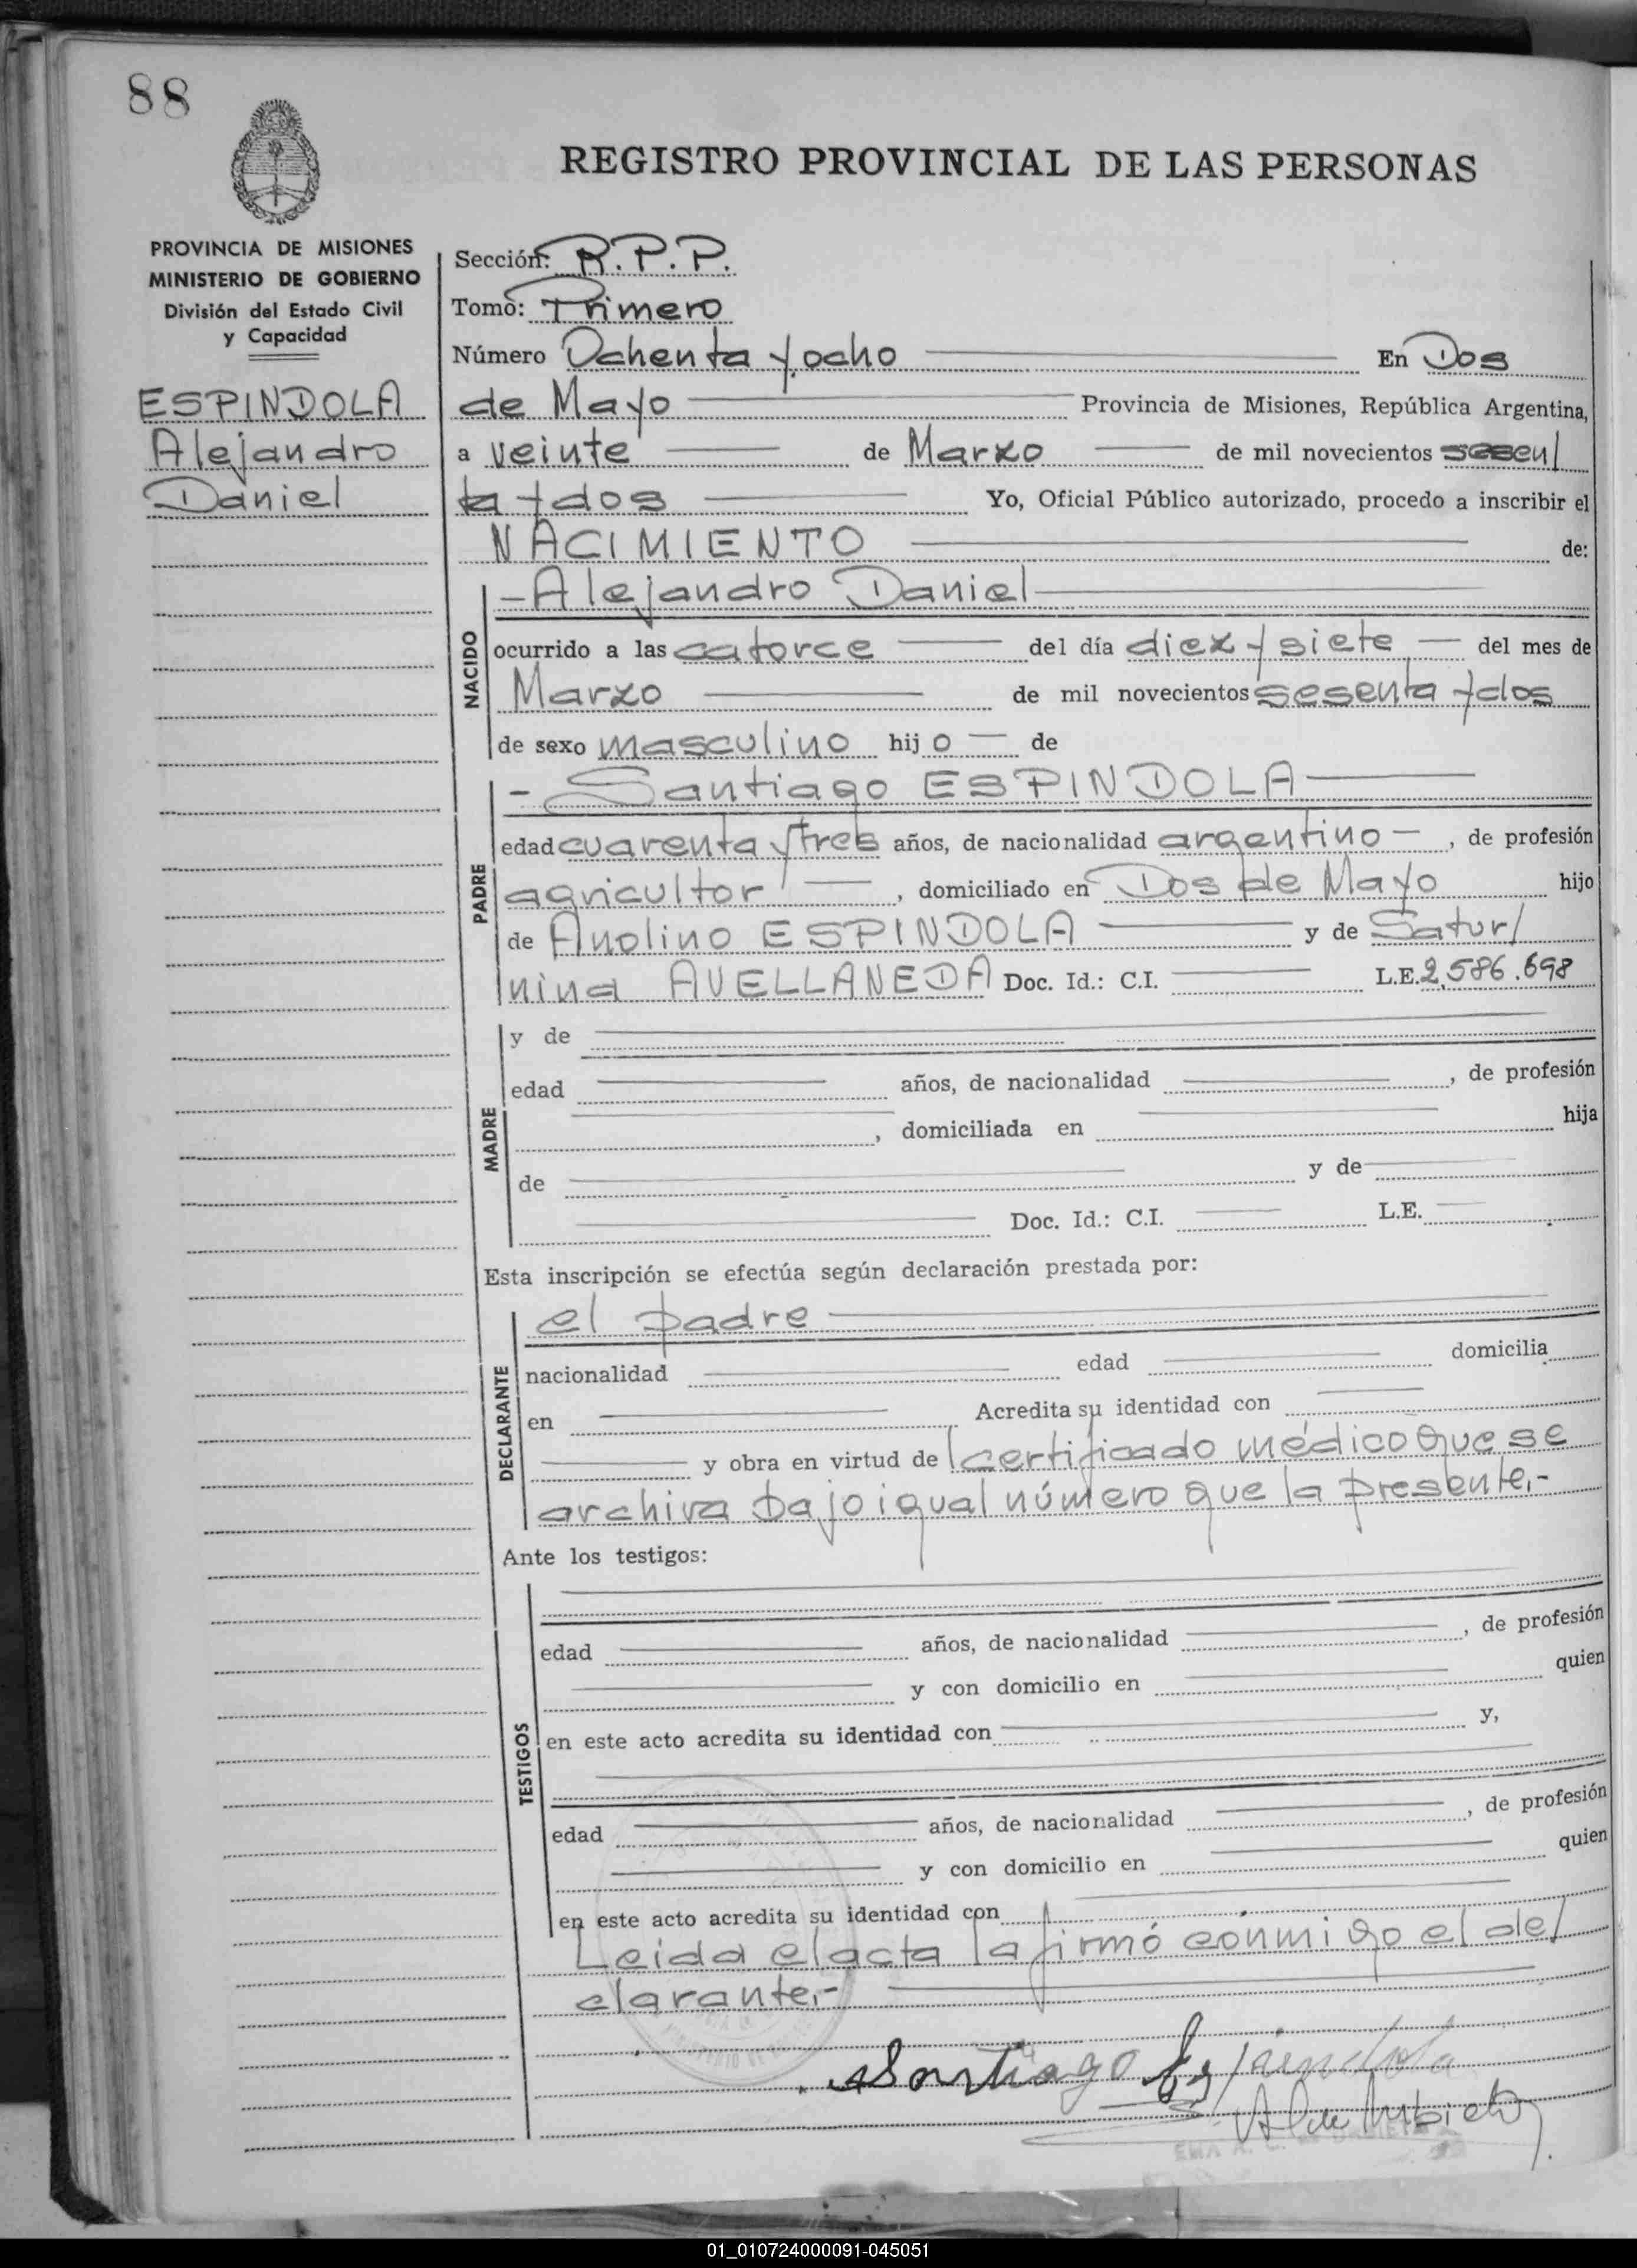 88
REGISTRO PROVINCIAL DE LAS PERSONAS
PROVINCIA DE MISIONES
MINISTERIO DE GOBIERNO
División del Estado Civil
y Capacidad
ESPINDOLA
Alejandro
Daniel
Sección: R.P.P.
Tomo: Primero
Número Ochenta y ocho En Dos
de Mayo Provincia de Misiones, República Argentina,
a veinte de Marzo de mil novecientos sesen/
ta y dos Yo, Oficial Público autorizado, procedo a inscribir el
NACIMIENTO de:
NACIDO
-Alejandro Daniel
ocurrido a las catorce del día diez y siete del mes de
Marzo de mil novecientos sesenta y dos
de sexo masculino hij o de
PADRE
- Santiago ESPINDOLA
edad cuarenta y tres años, de nacionalidad argentino , de profesión
agricultor , domiciliado en Dos de Mayo hijo
de ESPINDOLA y de Satur/
nina AVELLANEDA Doc. Id.: C.I. L.E. 2.586.698
MADRE
y de
edad años, de nacionalidad , de profesión
, domiciliada en hija
de y de
Doc. Id.: C.I. L.E.
Esta inscripción se efectúa según declaración prestada por:
DECLARANTE
el padre
nacionalidad edad domicilia
en Acredita su identidad con
y obra en virtud de certificado médico que se
archiva bajo igual número que la presente.-
Ante los testigos:
TESTIGOS
edad años, de nacionalidad , de profesión
y con domicilio en quien
en este acto acredita su identidad con y,
edad años, de nacionalidad , de profesión
y con domicilio en quien
en este acto acredita su identidad con
Leida el acta la firmó conmigo el de/
clarante.-
Santiago Espindola
01_010724000091-045051